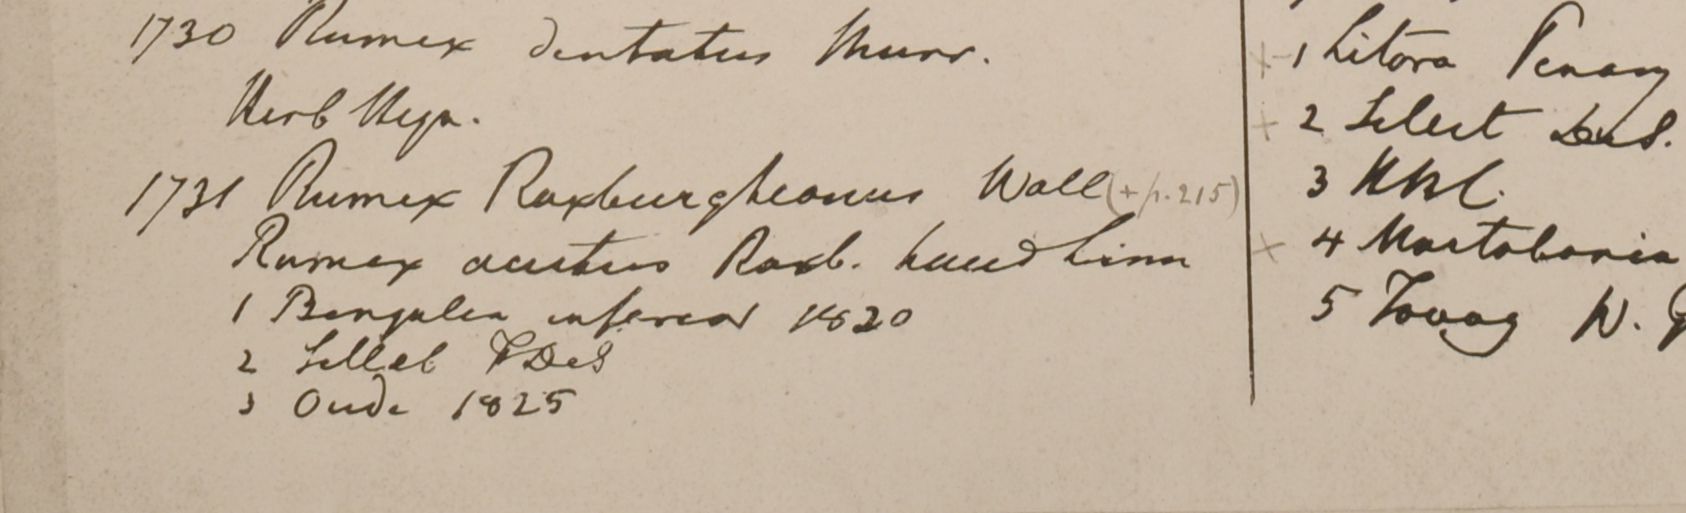 1730 Rumex dentatus Murr.
Herb Heyn.
1731 Rumex Roxburghianus Wall (+ p. 215)
Rumex acutus Roxb. haud Linn
1 Bengalen inferior 1820
2 Sillet FDeS
3 Oude 1825
1 Litora Penang
2 Silhet DeS.
3 HBC.
4 Martabania
5 Tavoy W. G